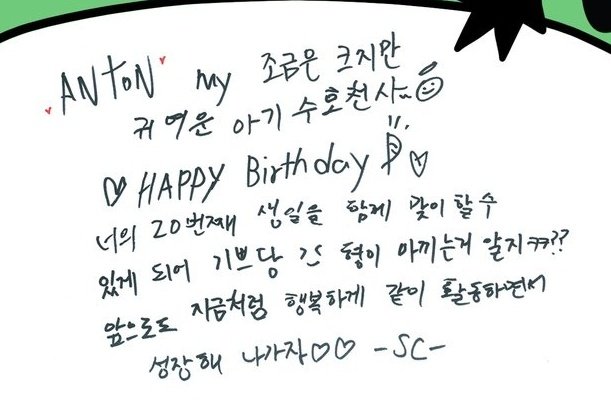 ANTON my 조금은 크지만
귀여운 아기 수호천사~
♡ HAPPY Birthday ♡
너의 20번째 생일을 함께 맞이할 수
있게 되어 기쁘당 형이 아끼는거 알지ㅋㅋ??
앞으로도 지금처럼 행복하게 같이 활동하면서
성장해 나가자♡♡ -SC-